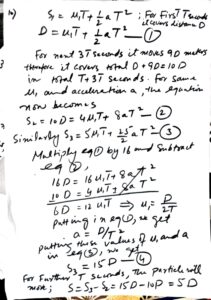 S₁ = u₁T + ½ a T² ; For first T seconds
it covers distance D
D = u₁T + ½ a T² — ①
For next 3T seconds it moves 9D meters
therefore it covers total D + 9D = 10D
in total T + 3T seconds. For same
u, and acceleration a, the equation
now becomes
S₂ = 10D = 4u₁T + 8aT² — ②
Similarly S₃ = 5u₁T + 25/2 aT² — ③
Multiply eq ① by 16 and subtract
eq ②,
16D = 16u₁T + 8aT²
10D = 4u₁T + 8aT²
6D = 12u₁T ⇒ u₁ = D/2T
putting in eq ①, we get
a = D/T²
putting these values of u₁ and a
in eq ③, we get
S₃ = 15D — ④
For Further T seconds, the particle will
move; S = S₃ - S₂ = 15D - 10D = 5D